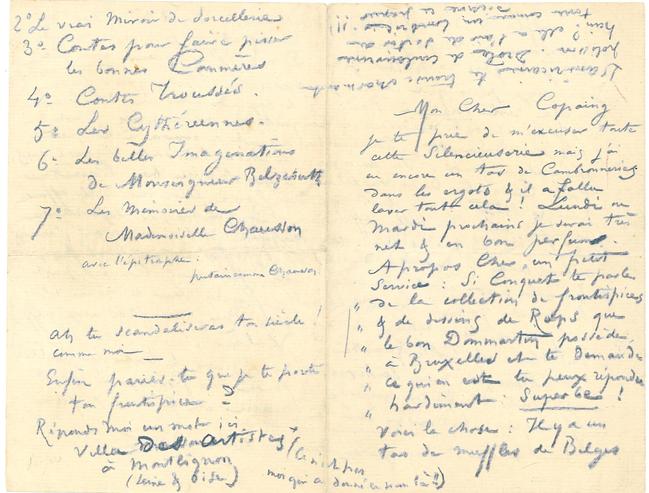 Mon Cher Copaing
je te prie de m'excuser toute
cette Silencieuserie mais j'ai
eu encore un tas de Cambronneries
dans les ergots & il a fallu
laver tout cela ! Lundi ou
Mardi prochains je serai très
net & en bon parfum.
A propos Cher, un petit
Service : Si Conquet te parle
" de la collection de frontispices
" & de dessins de Rops que
" le bon Dommartin possède,
" à Bruxelles et te demande
" ce qui en est tu peux répondre
" hardiment : Superbe !
Voici la chose : Il y a un
tas de muffles de Belges
2° Le vrai Miroir de Sorcellerie
3° Contes pour faire pisser
les bonnes Commères
4° Contes Troussés.
5° Les Cythéréennes.
6° Les belles Imaginations
de Monseigneur Belzebuth
7° Les Memoires de
Mademoiselle Chausson
avec l'épitaphe :
putain comme Chausson
Ah tu scandaliseras ton siècle !
comme moi
Enfin paries-tu que je te porte
ton frontispice ?
Réponds moi un mot ici
Villa Des Artistes
à Montlignon
(Seine & Oise)
(Ce n'est pas
moi qui a donné ce nom là !!)